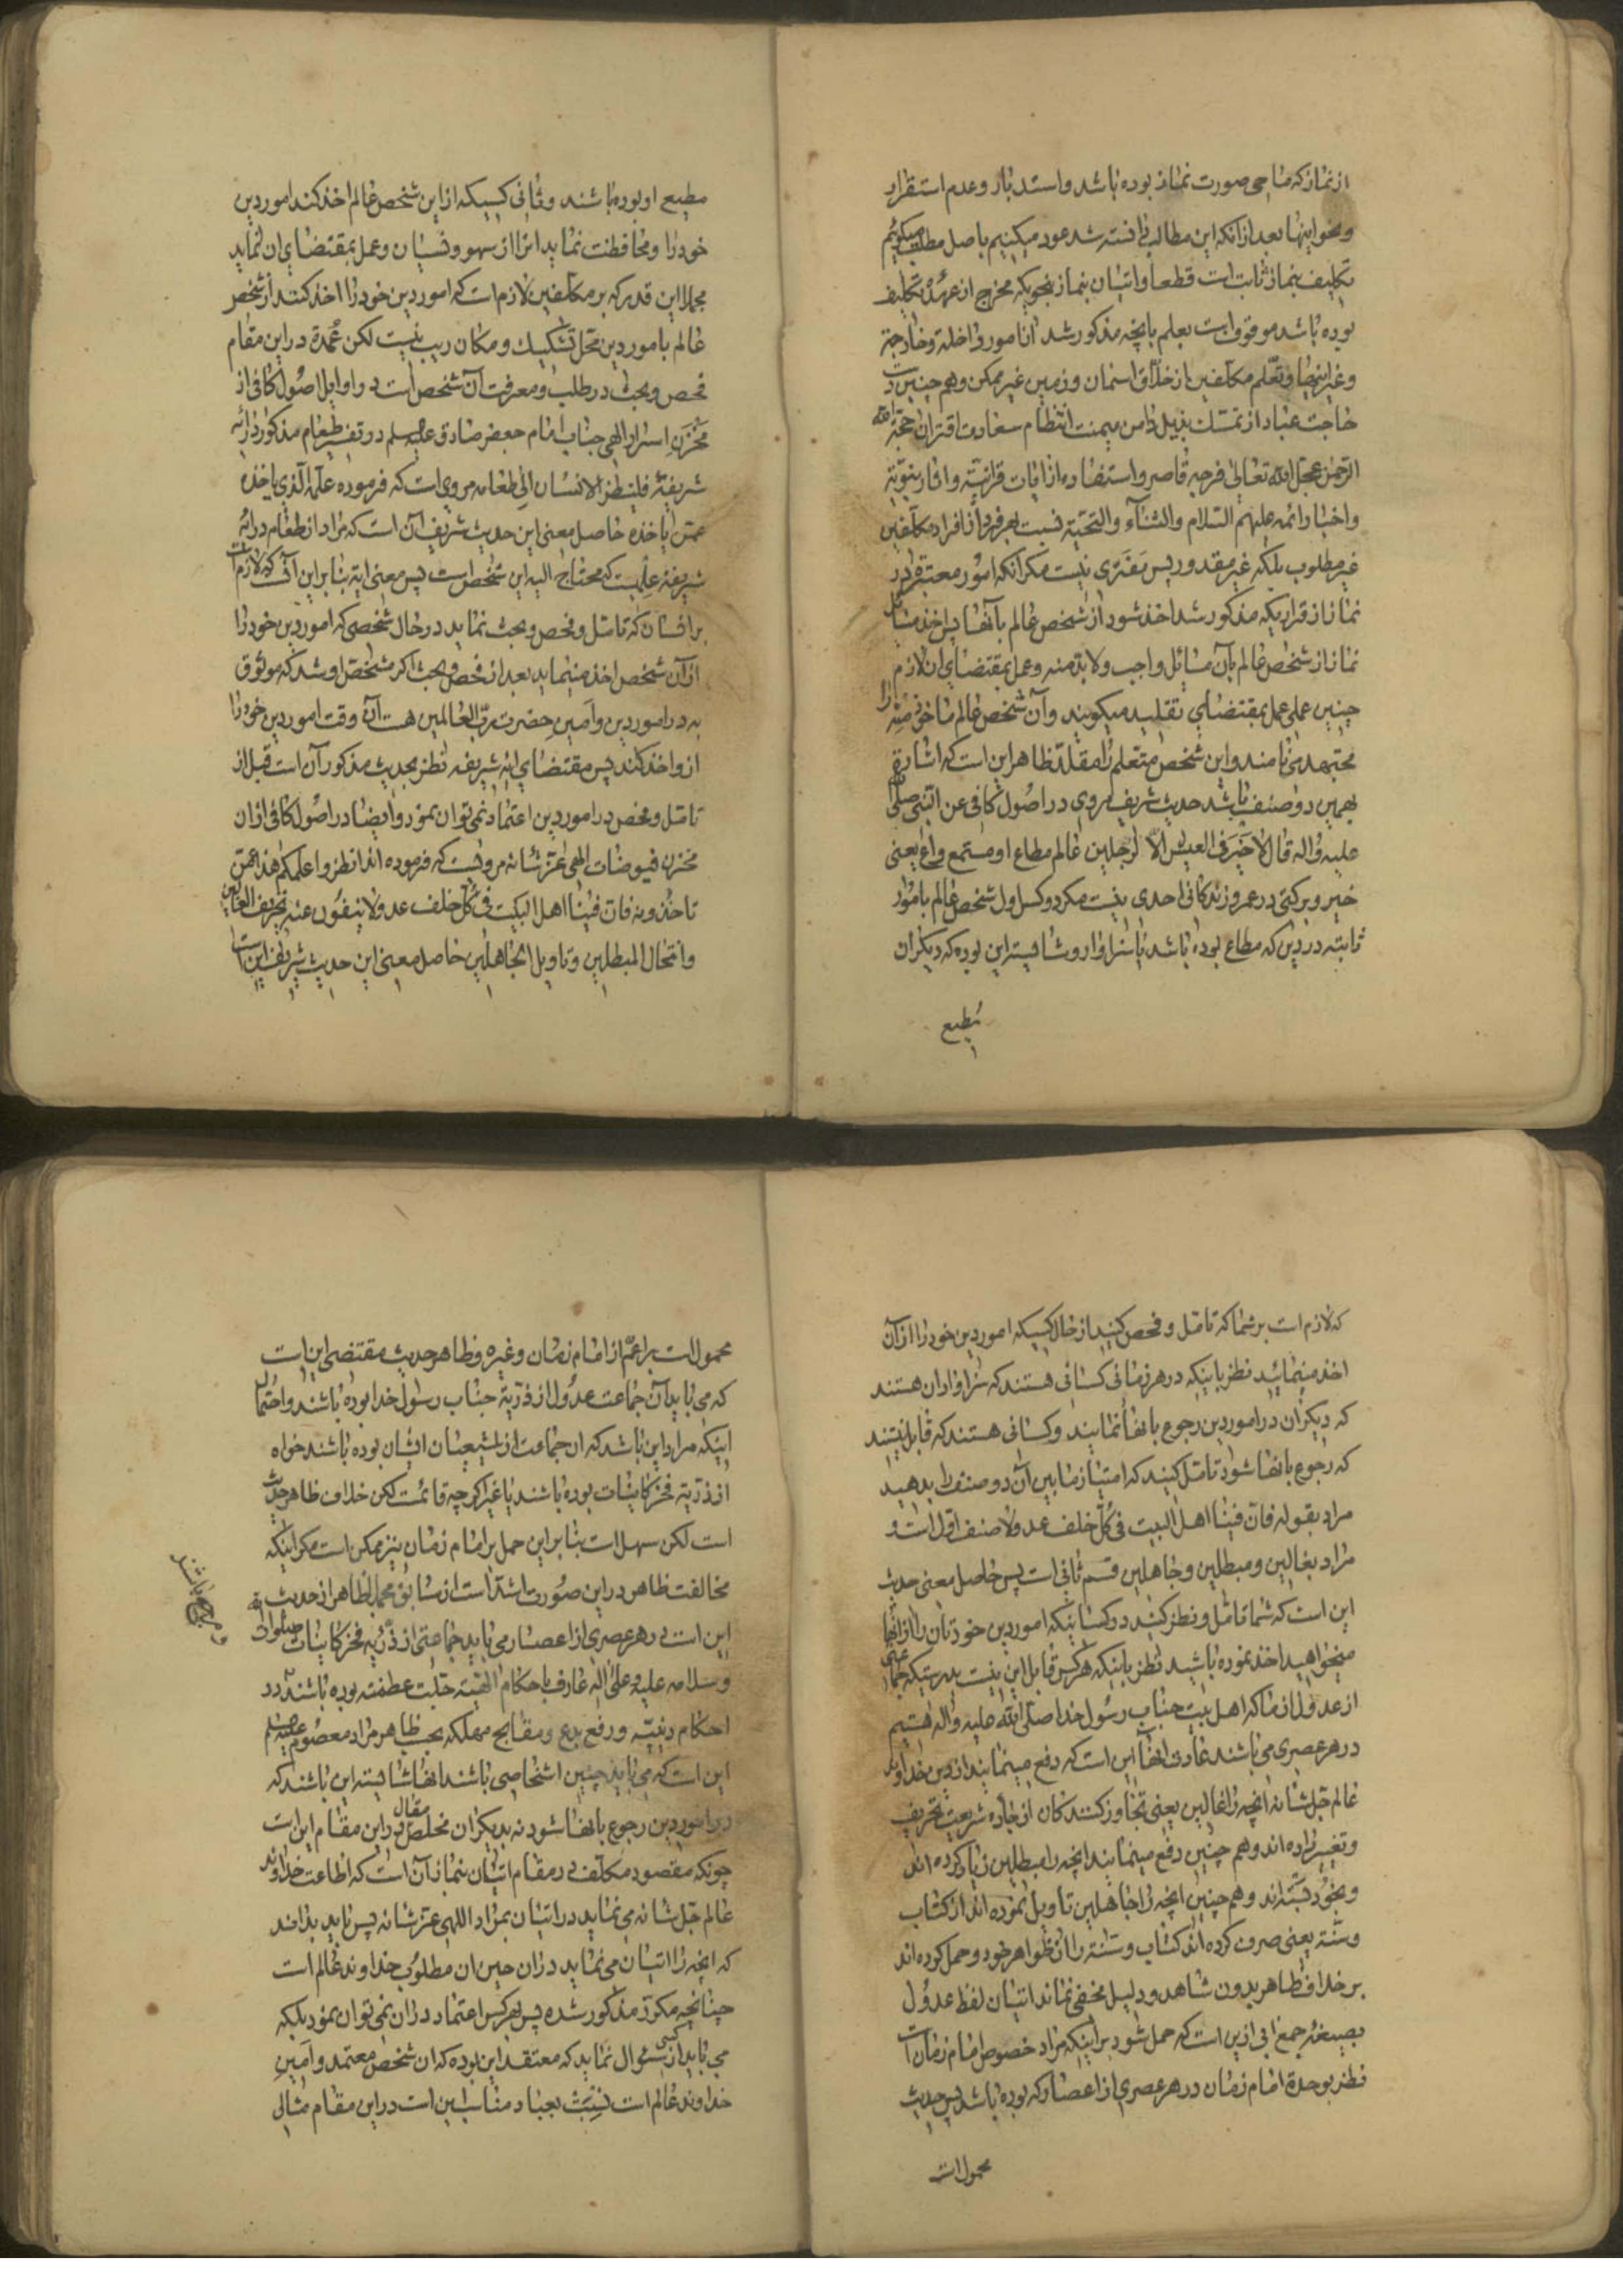 از نماز که ماحی صورت نماز بوده باشد و استدبار و عدم استقرار
و نحو اینها بعد از آنکه این مطالب دانسته شد عود میکنیم باصل مطلب میگوئیم
تکلیف بنماز ثابت است قطعا و اتیان بنماز بنحویکه مخرج از عهدهٔ تکلیف
بوده باشد موقوفست بعلم بآنچه مذکور شد از امور داخله و خارجه
و غیر اینها و تعلّم مکلّفین از خلّاق اسمان و زمین غیر ممکن و هم چنین است
حاجت عباد از تمسّك بذیل دامن میمنت انتظام سعادت اقتران حجّة الله
الرّحمن عجل الله تعالی فرجه قاصر و استفاده از ایات قرانیّه و اثار نبویّه
و اخبار ائمه علیهم السّلام و الثّناء و التّحیّة نسبت بهر فرد از افراد مکلّفین
غیر مطلوب بلکه غیر مقدور پس مَفَرّی نیست مکر آنکه امور معتبره در
نماز از قراریکه مذکور شد اخذ شود از شخص عالم بآنها پس اخذ مسائل
نماز از شخص عالم بآن مسائل واجب و لابدّ منه و عمل بمقتضای ان لازم
چنین عملی عمل بمقتضای تقلید میکویند و آن شخص عالم ماخوذ منه را
مجتهد می نامند و این شخص متعلم را مقلّد ظاهر این است که اشاره
بهمین دو صنف باشد حدیث شریف مروی در اصول کافی عن النّبی صلّی الله
علیه و اله قال لا خیر فی العیش الّا لرجلین عالم مطاع او مستمع واع یعنی
خیر و برکتی در عمر و زندکانی احدی نیست مکر دو کس اول شخص عالم بامور
ثابته در دین که مطاع بوده باشد یا سزاوار و شایسته این بوده که دیکران
مطیع
مطیع او بوده باشند و ثانی کسیکه از این شخص عالم اخذ کند امور دین
خود را و محافظت نماید انرا از سهو و نسیان و عمل بمقتضای ان نماید
مجملا این قدر که بر مکلّفین لازم است که امور دین خود را اخذ کنند از شخص
عالم بامور دین محل تشکیك و مکان ریب نیست لکن عُمدة در این مقام
فحص و بحث در طلب و معرفت آن شخص است در اوایل اصول کافی از
مخزن اسرار الهی جناب امام جعفر صادق علیه السلم در تفسیر طعام مذکور در ایه
شریفهٔ فلینظر الانسان الی طعامه مروی است که فرموده علمه الّذی یاخذه
عمّن یاخذه حاصل معنی این حدیث شریف آن است که مراد از طعام در ایه
شریفه علمیست که محتاج الیه این شخص است پس معنی ایه بنابراین آنست که لازم است
بر انسان که تامّل و فحص و بحث نماید در حال شخصی که امور دین خود را
از آن شخص اخذ مینماید بعد از فحص و بحث اکر مشخّص او شد که موثوق
به در امور دین و امین حضرت ربّ العالمین هست آن وقت امور دین خود را
از و اخذ کند پس مقتضای ایه شریفه نظر بحدیث مذکور آن است قبل از
تامّل و فحص در امور دین اعتماد نمی توان نمود و ایضا در اصول کافی از ان
مخزن فیوضات الهی عزّ شانه مرویست که فرموده اند انظروا علمکم هذا عمّن
تاخذونه فان فینا اهل البیت فی کلّ خلف عدولا ینفون عنه تحریف الغالین
و انتحال المبطلین و تاویل الجاهلین حاصل معنی این حدیث شریف این است
که لازم است بر شما که تامّل و فحص کنید از حال کسیکه امور دین خود را از آن
اخذ مینمائید نظر باینکه در هر زمانی کسانی هستند که سزاوار ان هستند
که دیکران در امور دین رجوع بانها نمایند و کسانی هستند که قابل نیستند
که رجوع بانها شود تامّل کنید که امتیاز مابین آن دو صنف را بدهید
مراد بقوله فان فینا اهل البیت فی کلّ خلف عدولا صنف اوّل است و
مراد بغالین و مبطلین و جاهلین قسم ثانی است پس حاصل معنی حدیث
این است که شما تامّل و نظر کنید در کسانیکه امور دین خودتان را از انها
میخواهید اخذ نموده باشید نظر باینکه هر کس قابل این نیست بدرستیکه جماعتی
از عدول از ما که اهل بیت جناب رسول خدا صلّی الله علیه و اله هستیم
در هر عصری می باشند عادت انها این است که دفع مینمایند از دین خداوند
عالم جلّ شانه انچه را غالین یعنی تجاوز کنندکان از جاده شریعت تحریف
و تغییر داده اند و هم چنین دفع مینمایند انچه را مبطلین زیاد کرده اند
و بخود بسته اند و هم چنین انچه را جاهلین تاویل نموده اند از کتاب
و سنّة یعنی صرف کرده اند کتاب و سنّة را از ظواهر خود و حمل کرده اند
بر خلاف ظاهر بدون شاهد و دلیل مخفی نماند اتیان لفظ عدول
بصیغهٔ جمع ابی ازین است که حمل شود بر اینکه مراد خصوص امام زمان است
نظر بوحدة امام زمان در هر عصری از اعصار که بوده باشد پس حدیث
محمول است
محمول است بر اعمّ از امام زمان و غیره و ظاهر حدیث مقتضی این است
که می باید آن جماعت عدول از ذرّیة جناب رسول خدا بوده باشند و احتمال
اینکه مراد این باشد که ان جماعت از شیعیان ایشان بوده باشند خواه
از ذرّیه فخر کاینات بوده باشند یا غیر اکرچه قائمست لکن خلاف ظاهر حدیث
است لکن سهل است بنابراین حمل بر امام زمان نیز ممکن است مکر اینکه
مخالفت ظاهر در این صورت اشدّ است از سابق مجملا ظاهر از حدیث
این است در هر عصری از اعصار می باید جماعتی از ذرّیه فخر کاینات صلوات
و سلامه علیه و علی اله عارف باحکام الهیّه جلّت عظمته بوده باشند در
احکام دینیّه و رفع بدع و مقابح مهلکه بحسب ظاهر مراد معصوم علیه السلم
این است که می باید چنین اشخاصی باشند انها شایسته این باشند که
در امور دین رجوع بانها شود نه بدیکران مخلص مقال در این مقام این است
چونکه مقصود مکلّف در مقام اتیان بنماز آن است که اطاعت خداوند
عالم جلّ شانه می نماید در اتیان بمراد اللهی عزّ شانه پس باید بداند
که انچه را اتیان می نماید در ان حین ان مطلوب خداوند عالم است
چنانچه مکرّر مذکور شده پس بهر کس اعتماد در ان نمی توان نمود بلکه
می باید از کسی سؤال نماید که معتقد این بوده که ان شخص معتمد و امین
خداوند عالم است نسبت بعباد مناسب این است در این مقام مثالی